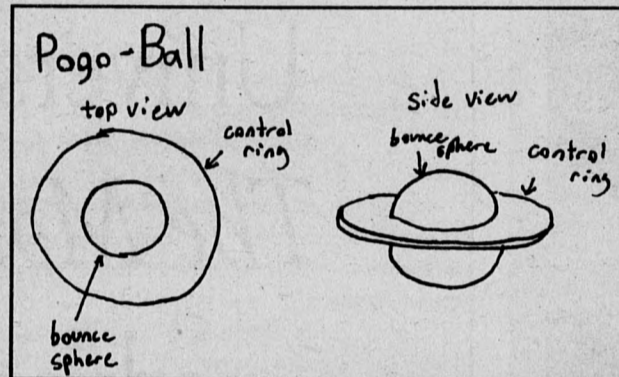 Pogo-Ball
top view
control
ring
bounce
sphere
side view
bounce
sphere
control
ring